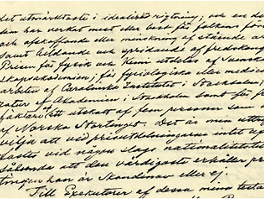 det utmärktaste i idealisk rigtning; och en del
den som har verkat mest eller best för folkens för
och afskaffande eller minskning af stående ar
samt bildande och spridande af fredskong
Prisen för fysik och kemi utdelas af Svenska
skapsakademien; för fysiologiska eller medicin
arbeten af Carolinska Institutet i Stockholm;
ratur af Akademien i Stockholm samt för
fäktare af ett utskott af fem personer som
af Norska Stortinget. Det är min uttry
vilja att vid prisutdelningarna intet af
fästes vid någon slags nationalitetstil
sålunda att den värdigaste erhåller pri
tingen han är Skandinav eller ej.
Till Exekutorer af dessa mina testa